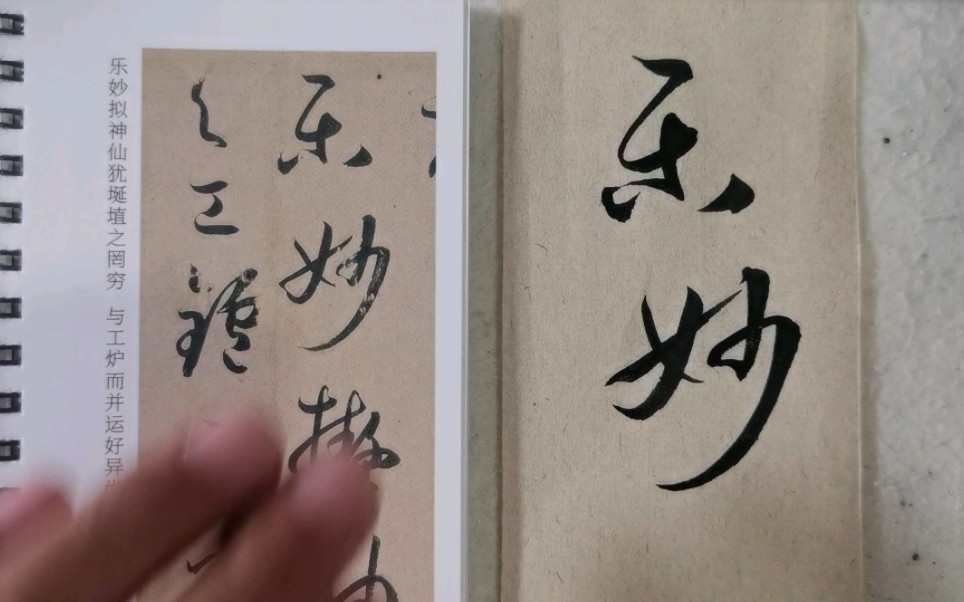 乐妙拟神仙犹埏埴之罔穷 与工炉而并运好异
乐妙
乐妙
之工